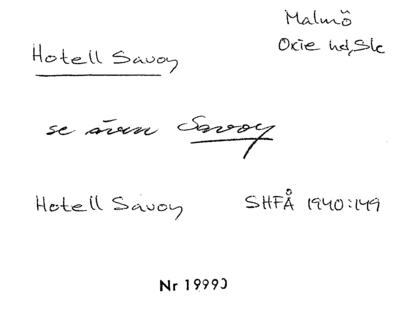 Malmö
Oxie hd, Sk
Hotell Savoy
se även Savoy
Hotell Savoy SHFÅ 1940:149
Nr 19990